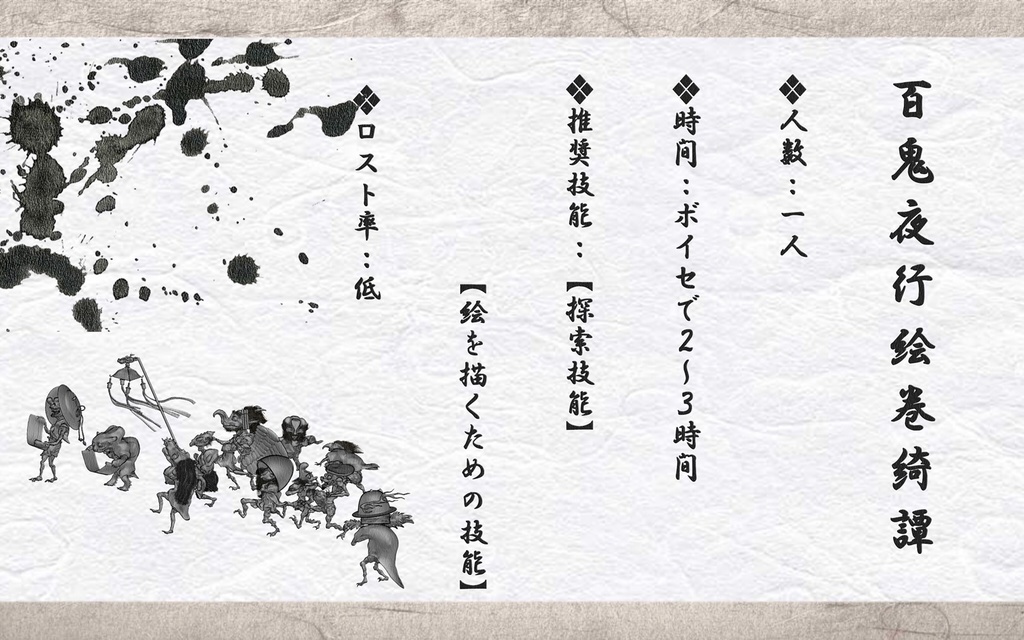 百鬼夜行絵巻綺譚
❖人数：一人
❖時間：ボイセで2～3時間
❖推奨技能：【探索技能】
【絵を描くための技能】
❖ロスト率：低